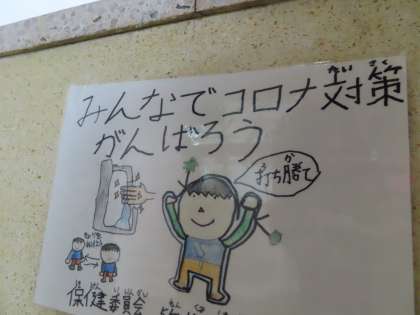 みんなでコロナ対策
がんばろう
打ち勝て
保健委員会